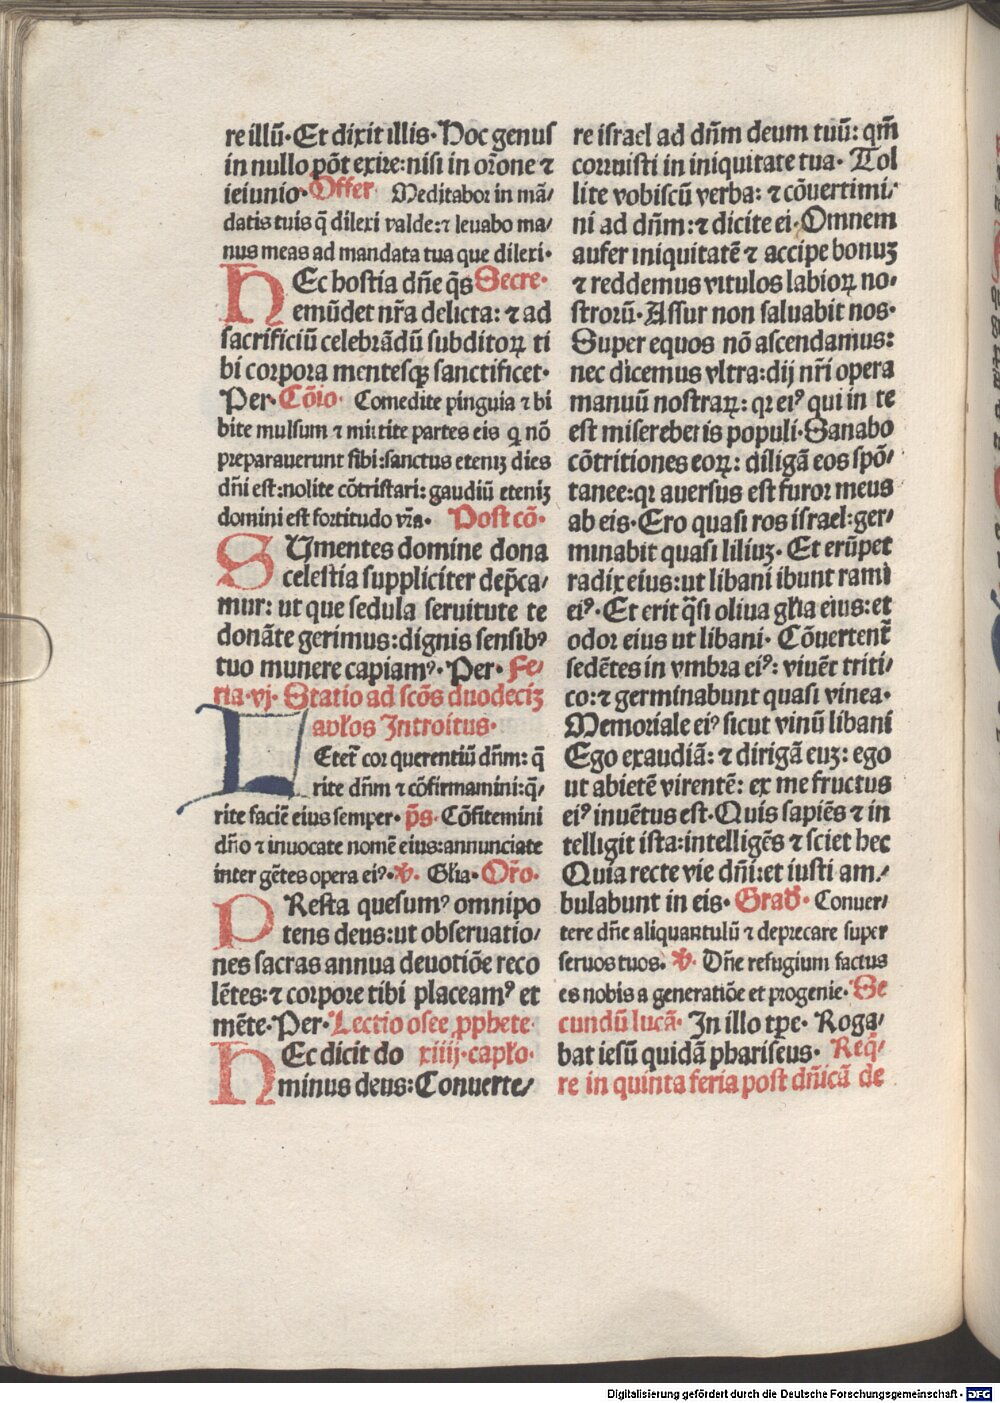 re illū·Et dixit illis·Hoc genus
in nullo pōt exire:nisi in or̄one ⁊
ieiunio·Offer Meditabor in mā/
datis tuis q̄ dilexi valde:⁊ leuabo ma/
nus meas ad mandata tua que dilexi·
HEc hostia dn̄e q̄s Secre·
emūdet nr̄a delicta: ⁊ ad
sacrificiū celebrādū subditoꝝ ti
bi corpora mentesqꝫ sanctificet·
Per·Cōio· Comedite pinguia ⁊ bi
bite mulsum ⁊ mittite partes eis q nō
preparauerunt sibi:sanctus eteniꝫ dies
dn̄i est:nolite cōtristari: gaudiū eteniꝫ
domini est fortitudo vr̄a· Post cō·
SUmentes domine dona
celestia suppliciter dep̄ca/
mur: ut que sedula seruitute te
donāte gerimus:dignis sensibꝰ
tuo munere capiamꝰ·Per· Fe/
ria·vj· Statio ad scōs duodeciꝫ
apłos Introitus·
LEtet̄ cor querentiū dn̄m: q̄
rite dn̄m ⁊ cōfirmamini:q̄/
rite faciē eius semper· p̄s· Cōfitemini
dn̄o ⁊ inuocate nomē eius:annunciate
inter gētes opera eiꝰ·℣· Glīa·Or̄o·
PResta quesumꝰ omnipo
tens deus:ut obseruatio/
nes sacras annua deuotiōe reco
lētes:⁊ corpore tibi placeamꝰ et
mēte·Per·Lectio osee ꝓphete·
HEc dicit do xiiij·capło·
minus deus:Conuerte/
re israel ad dn̄m deum tuū: qm̄
corruisti in iniquitate tua· Tol
lite vobiscū verba: ⁊ cōuertimi/
ni ad dn̄m:⁊ dicite ei·Omnem
aufer iniquitatē ⁊ accipe bonuꝫ
⁊ reddemus vitulos labioꝝ no/
strorū·Assur non saluabit nos·
Super equos nō ascendamus:
nec dicemus vltra:dij nr̄i opera
manuū nostraꝝ: qꝛ eiꝰ qui in te
est misereberis populi·Sanabo
cōtritiones eoꝝ: diligā eos spō/
tanee:qꝛ auersus est furor meus
ab eis·Ero quasi ros israel:ger/
minabit quasi liliuꝫ·Et erūpet
radix eius:ut libani ibunt rami
eiꝰ·Et erit q̄si oliua glīa eius:et
odor eius ut libani· Cōuertent̄
sedētes in vmbra eiꝰ: viuēt triti/
co:⁊ germinabunt quasi vinea·
Memoriale eiꝰ sicut vinū libani
Ego exaudiā: ⁊ dirigā euꝫ: ego
ut abietē virentē: ex me fructus
eiꝰ inuētus est·Quis sapiēs ⁊ in
telligit ista:intelligēs ⁊ sciet hec
Quia recte vie dn̄i:et iusti am/
bulabunt in eis· Grad̄· Conuer/
tere dn̄e aliquantulū ⁊ deprecare super
seruos tuos· ℣· Dn̄e refugium factus
es nobis a generatiōe et progenie·Se
cundū lucā· In illo tp̄e· Roga/
bat iesū quidā phariseus· Req̄/
re in quinta feria post dn̄icā de
Digitalisierung gefördert durch die Deutsche Forschungsgemeinschaft - DFG